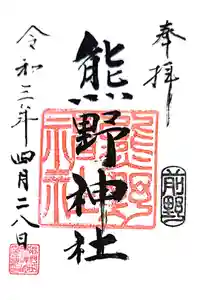 奉拝
前野
熊野神社
令和三年四月二八日